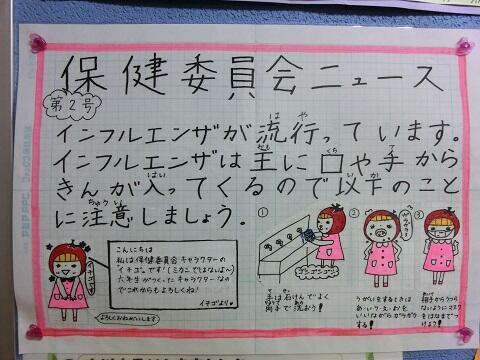 保健委員会ニュース
第2号
インフルエンザが流行っています。
インフルエンザは主に口や手から
きんが入ってくるので以下のこと
に注意しましょう.
こんにちは
私は保健委員会キャラクターの
"イチゴ"です!(ミクニではないよ~)
六年生がつくったキャラクターなの
でこれからもよろしくね!
イチゴより♥
イチゴです
よろしくおねがいします
①
ゴシゴシゴシ
手は石けんでよく
両手で洗おう!
②
ガラガラ
うがいをするときは
あ・い・う・え・お と
いいながらガラガラ
する!
③
相手からうつら
ないようにマスク
をはなまでつ
けよう!